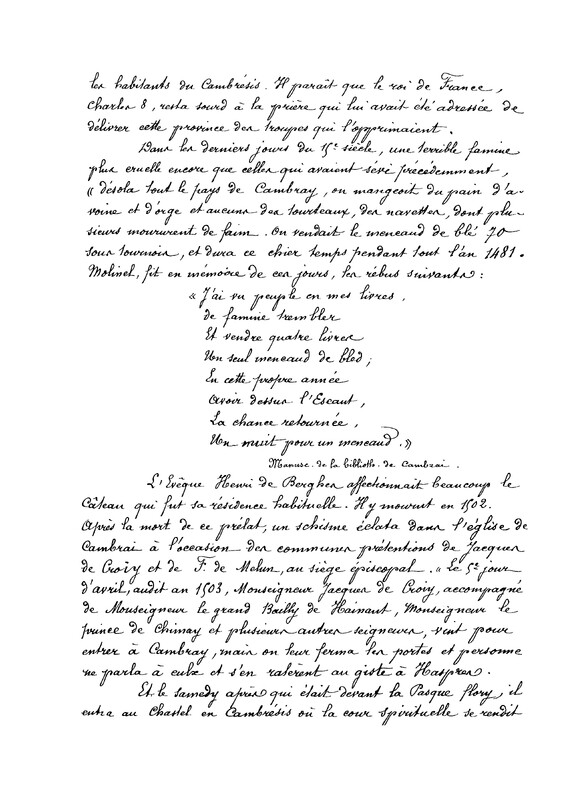 les habitants du Cambrésis. Il paraît que le roi de France,
Charles 8, resta sourd à la prière qui lui avait été adressée de
délivrer cette province des troupes qui l'opprimaient.
Dans les derniers jours du 15e siècle, une terrible famine
plus cruelle encore que celles qui avaient sévi précédemment,
« désola tout le pays de Cambray, on mangeoit du pain d'a-
voine et d'orge et aucuns des tourteaux, des navettes, dont plu-
sieurs moururent de faim. On vendait le mencaud de blé 70
sous tournois, et dura ce chier temps pendant tout l'an 1481.
Molinet, fit en mémoire de ces jours, les rébus suivants :
« J'ai vu peuple en mes livres,
de famine trembler
Et vendre quatre livres
Un seul mencaud de bled ;
En cette propre année
Avoir dessus l'Escaut,
La chance retournée,
Un muit pour un mencaud. »
Manusc. de la biblioth. de Cambrai.
L'Evêque Henri de Berghes affectionnait beaucoup le
Câteau qui fut sa résidence habituelle. Il y mourut en 1502.
Après la mort de ce prélat, un schisme éclata dans l'église de
Cambrai à l'occasion des communes prétentions de Jacques
de Croÿ et de F. de Melun, au siège épiscopal. « Le 5e jour
d'avril, audit an 1503, Monseigneur Jacques de Croiy, accompagné
de Monseigneur le grand Bailly de Hainaut, Monseigneur le
prince de Chimay et plusieurs autres seigneurs, vint pour
entrer à Cambray, mais on leur ferma les portes et personne
ne parla à eulx et s'en ralèrent au giste à Haspres.
Et le samedy après qui était devant la Pasque flory, il
entra au Chastel en Cambrésis où la cour spirituelle se rendit